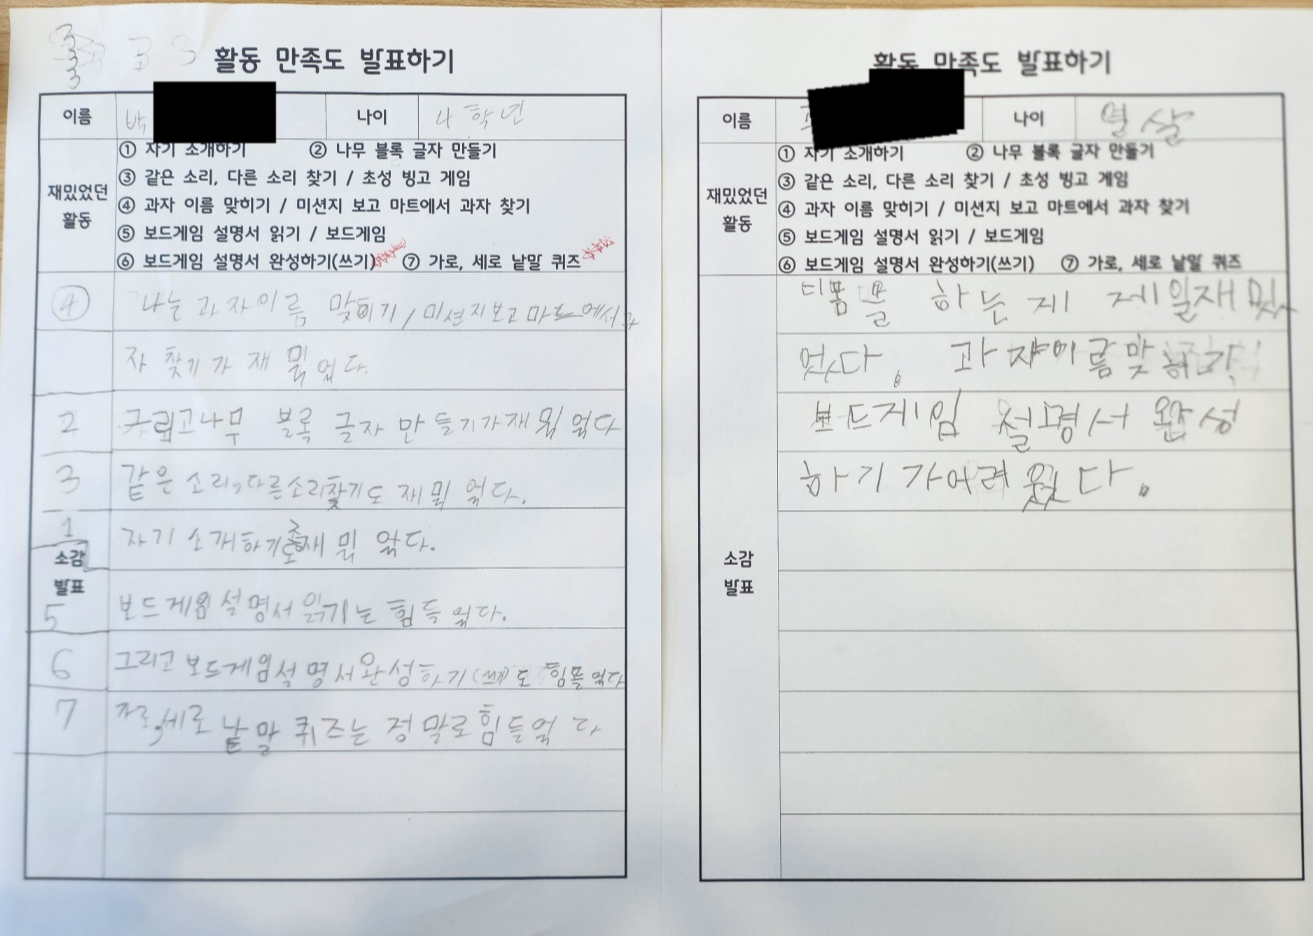 활동 만족도 발표하기
이름 박 나이 4학년
재밌었던 활동
① 자기 소개하기 ② 나무 블록 글자 만들기
③ 같은 소리, 다른 소리 찾기 / 초성 빙고 게임
④ 과자 이름 맞히기 / 미션지 보고 마트에서 과자 찾기
⑤ 보드게임 설명서 읽기 / 보드게임
⑥ 보드게임 설명서 완성하기(쓰기) ⑦ 가로, 세로 낱말 퀴즈
소감 발표
④ 나는 과자이름 맞히기 / 미션지보고 마트에서 과
자 찾기가 재밌었다.
2 그리고나무 블록 글자 만들기가재밌었다
3 같은소리,다른소리찾기도 재밌었다.
1 자기소개하기도 재밌었다.
5 보드게임설명서읽기는 힘들었다.
6 그리고보드게임설명서완성하기(쓰기)도 힘들었다
7 가로,세로 낱말 퀴즈는 정말로힘들었다
활동 만족도 발표하기
이름 나이 열살
재밌었던 활동
① 자기 소개하기 ② 나무 블록 글자 만들기
③ 같은 소리, 다른 소리 찾기 / 초성 빙고 게임
④ 과자 이름 맞히기 / 미션지 보고 마트에서 과자 찾기
⑤ 보드게임 설명서 읽기 / 보드게임
⑥ 보드게임 설명서 완성하기(쓰기) ⑦ 가로, 세로 낱말 퀴즈
소감 발표
하는게 제일재밌
었다. 과자이름맞히기,
보드게임 설명서 완성
하기가어려웠다.